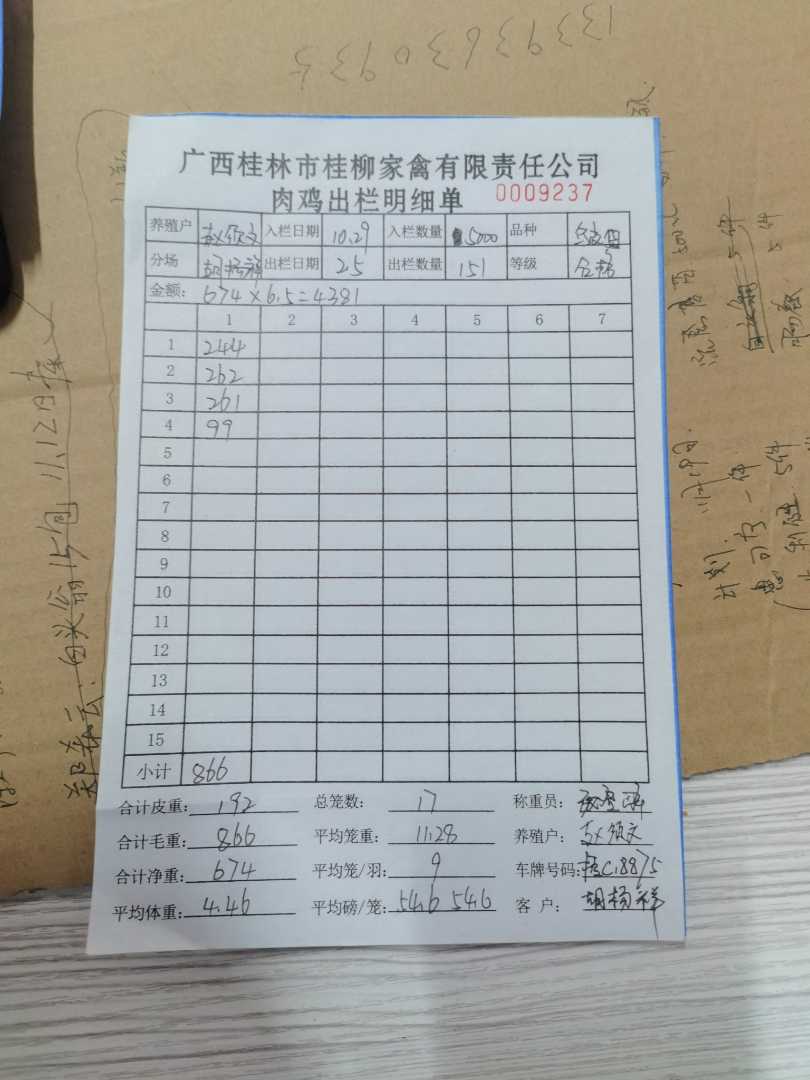 1393630935
广西桂林市桂柳家禽有限责任公司
肉鸡出栏明细单 0009237
养殖户 赵领文 入栏日期 10.29 入栏数量 5000 品种
分场 胡杨祥 出栏日期 25 出栏数量 151 等级 合格
金额: 674×6.5=4381
1 2 3 4 5 6 7
1 244
2 262
3 261
4 99
5
6
7
8
9
10
11
12
13
14
15
小计 866
合计皮重: 192 总笼数: 17 称重员:
合计毛重: 866 平均笼重: 11.28 养殖户: 赵领文
合计净重: 674 平均笼/羽: 9 车牌号码: 桂C.8875
平均体重: 4.46 平均磅/笼: 54.6 54.6 客 户: 胡杨祥
郑春云: 白头翁15包 11.12日
5件
5件
计划.
一件
5件